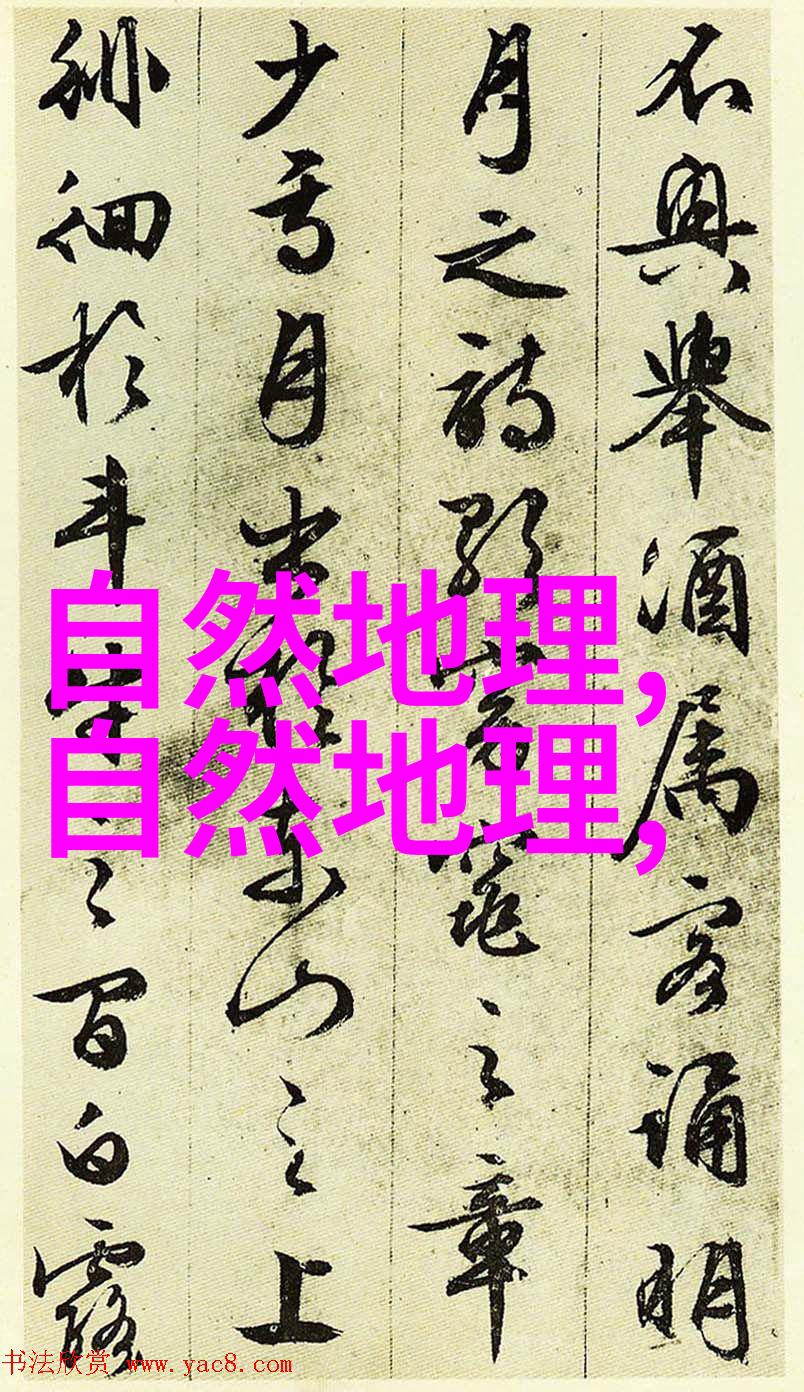 不興舉酒属客誦明
月之詩歌窈窕之章
少焉月出於東山之上
徘徊於斗牛之間白露
自然地理,
自然地理,
书法欣赏 www.yac8.com